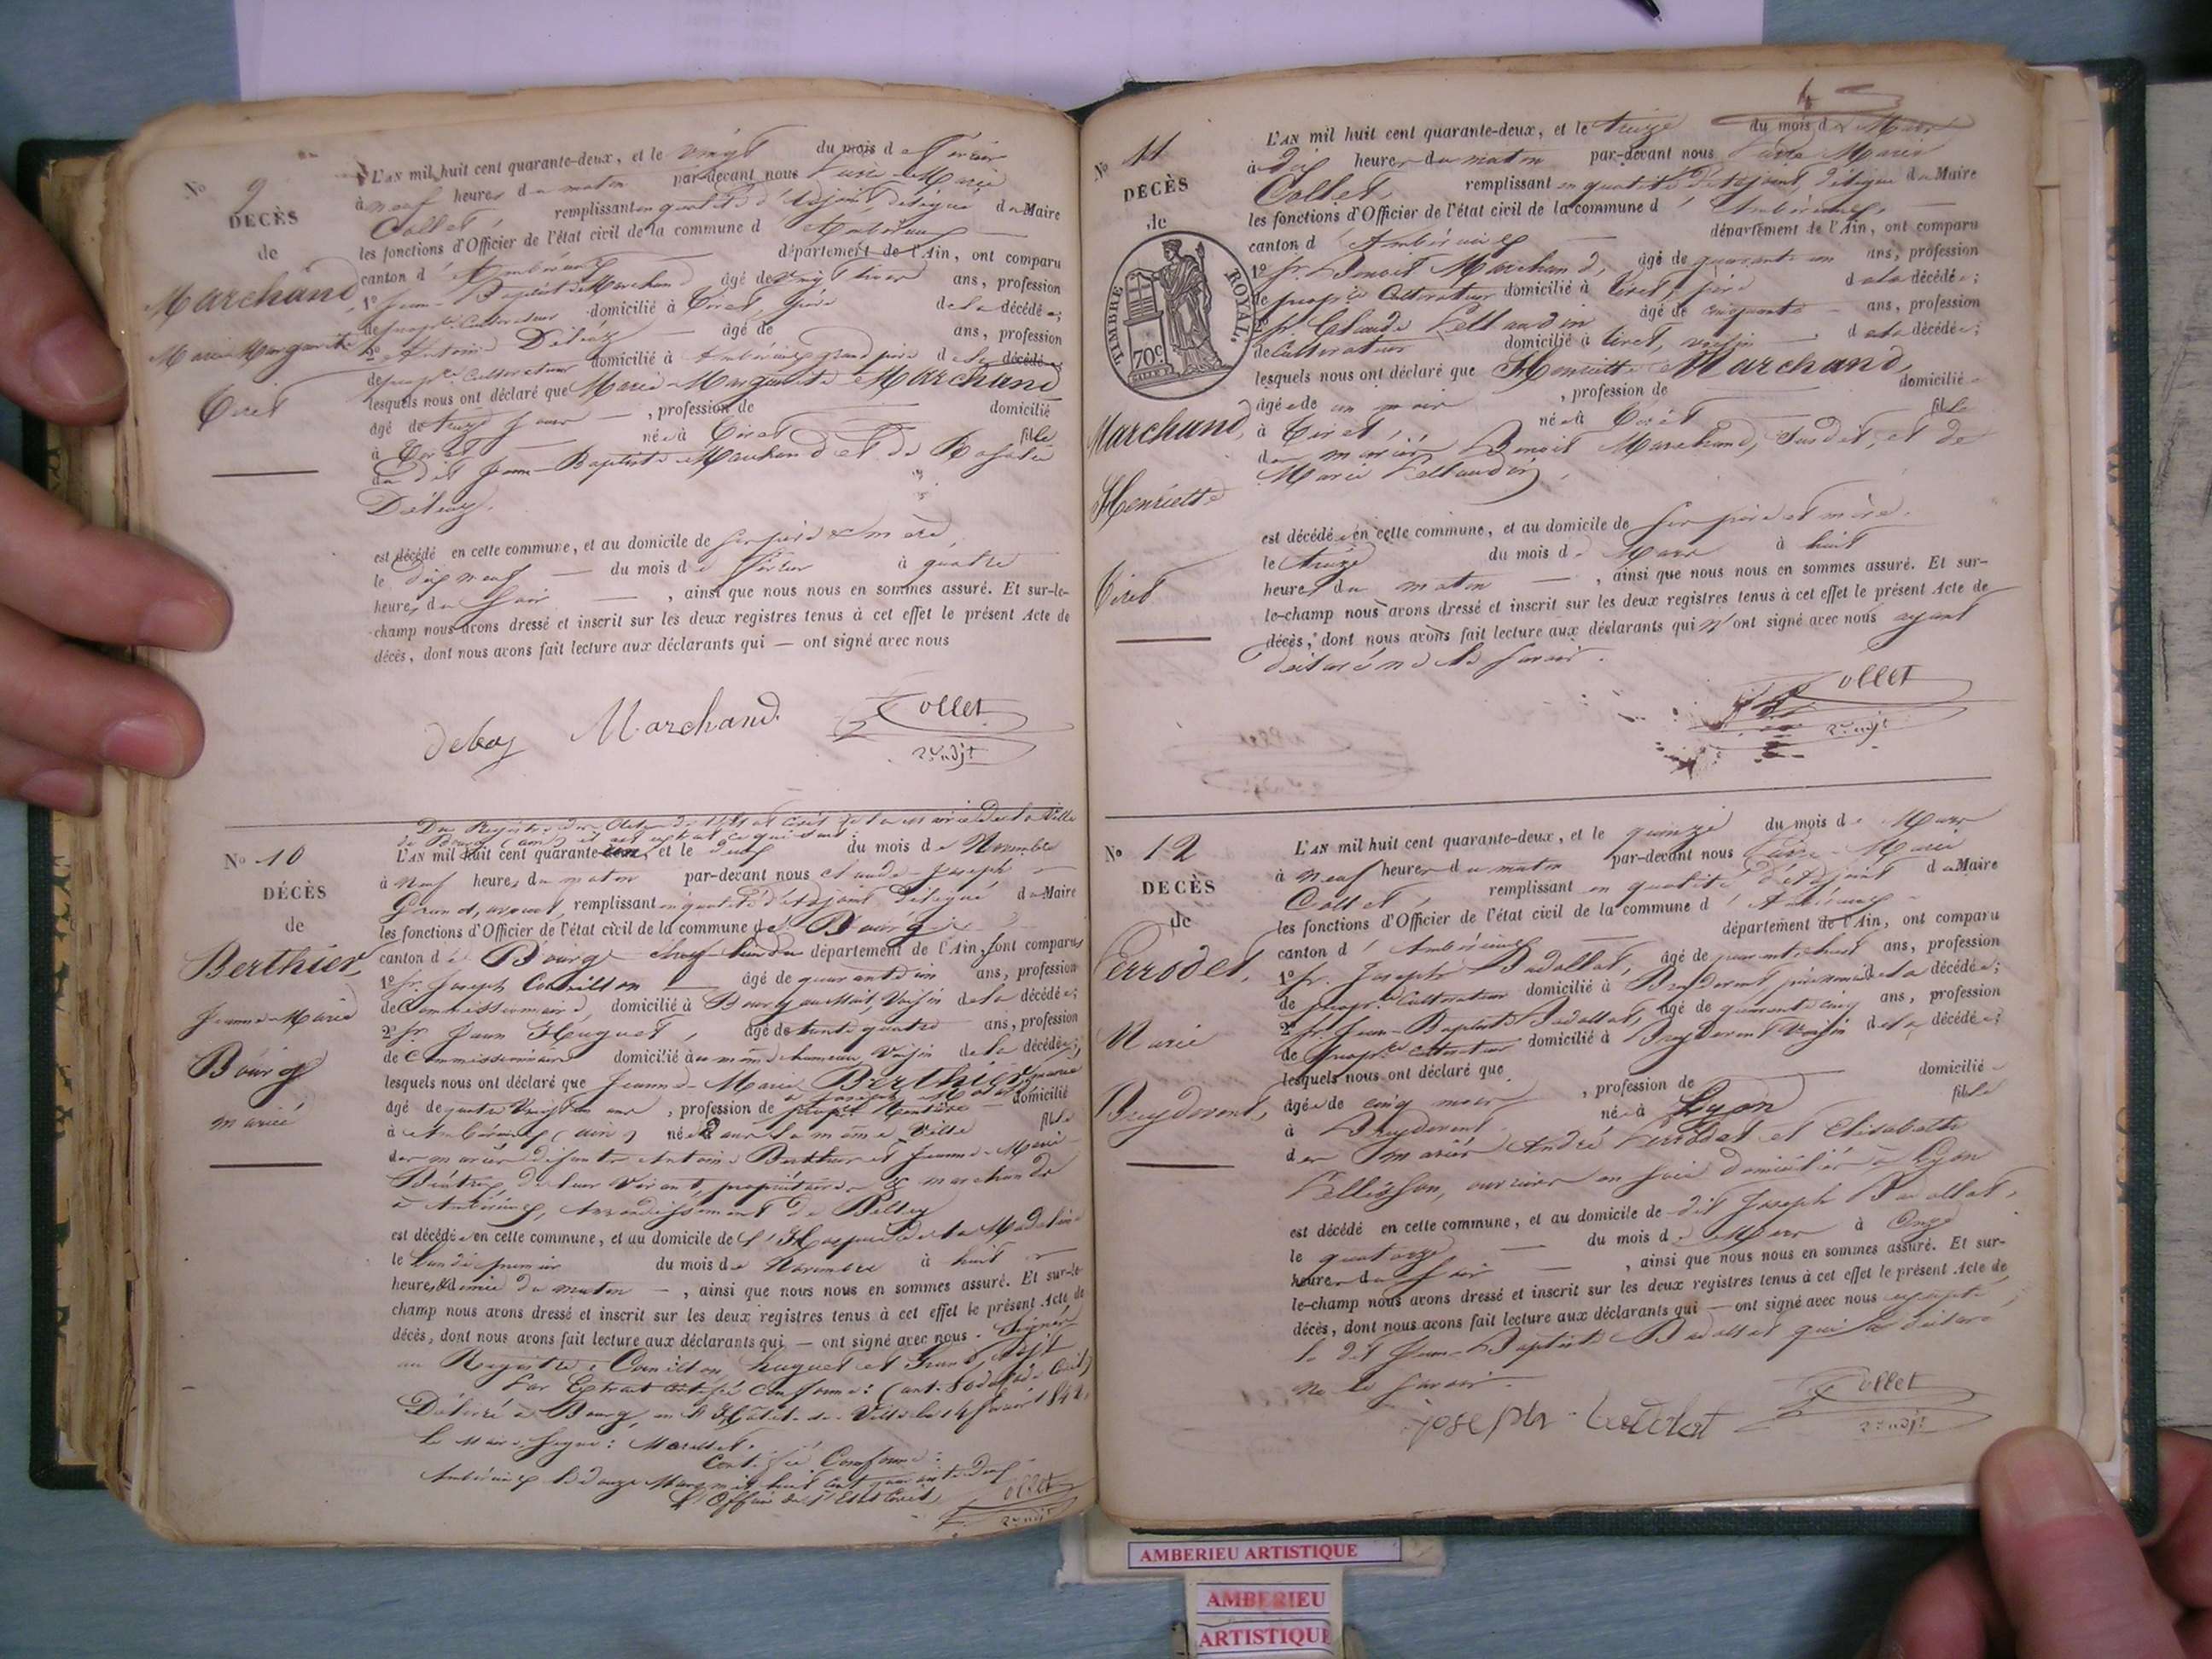 No 9
DÉCÈS
de
Marchand
Marie Marguerite
Tiret
L'AN mil huit cent quarante-deux, et le vingt du mois de Février
à neuf heures du matin par-devant nous Marie
Collet, remplissant en qualité d'Adjoint, délégué du Maire
les fonctions d'Officier de l'état civil de la commune d'Ambérieux
canton d'Ambérieux département de l'Ain, ont comparu
1º Jean-Baptiste Marchand âgé de vingt ans, profession
de propre Cultivateur domicilié à Tiret, père de la décédée;
2º Antoine Debeay âgé de ans, profession
de propre Cultivateur domicilié à Ambérieux grand père de la décédée
lesquels nous ont déclaré que Marie-Marguerite Marchand
âgé de treize jours, profession de domicilié
à Tiret née à Tiret fille
du dit Jean-Baptiste Marchand et de Rosalie
Debeay.
est décédé en cette commune, et au domicile de ses père & mère
le dix neuf du mois de Février à quatre
heures du soir, ainsi que nous nous en sommes assuré. Et sur-le-
champ nous avons dressé et inscrit sur les deux registres tenus à cet effet le présent Acte de
décès, dont nous avons fait lecture aux déclarants qui — ont signé avec nous
debeay Marchand Collet
2e adjt
No 10
DÉCÈS
de
Berthier
Jeanne-Marie
Bourg
mariée
Du Registre des Actes de l'Etat Civil de la mairie de la Ville
de Bourg (ain) il est extrait ce qui suit:
L'AN mil huit cent quarante-un, et le deux du mois de Novembre
à neuf heures du matin par-devant nous Claude-Joseph
Grand, avocat, remplissant en qualité d'Adjoint délégué du Maire
les fonctions d'Officier de l'état civil de la commune de Bourg
canton de Bourg chef-lieu du département de l'Ain, sont comparus
1º Sr. Joseph Convilton âgé de quarante un ans, profession
de Commissionnaire, domicilié à Bourg, voisin de la décédée;
2º Sr. Jean Huguet, âgé de trente quatre ans, profession
de Commissionnaire domicilié au même hameau, voisin de la décédée;
lesquels nous ont déclaré que Jeanne-Marie Berthier,
âgé de quatre vingt un ans, profession de propre Rentière domicilié
à Ambérieux (ain) née à la même Ville fille
des mariés défunts Antoine Berthier et Jeanne-Marie
de leur vivant, propriétaires & marchands
à Ambérieux, Arrondissement de Belley
est décédée en cette commune, et au domicile de l'Hospice de la Madeleine
le Lundi premier du mois de Novembre à huit
heures & demie du matin —, ainsi que nous nous en sommes assuré. Et sur-le-
champ nous avons dressé et inscrit sur les deux registres tenus à cet effet le présent Acte de
décès, dont nous avons fait lecture aux déclarants qui — ont signé avec nous. Signés
au Registre: Convilton, huguet et Grand, adjt
Par Extrait certifié conforme:
Délivré à Bourg, en l'Hôtel-de-Ville le 14 février 1842,
le Maire Signé:
Certifié Conforme:
Ambérieux le douze Mars mil huit cent quarante Deux
L'Officier de l'Etat Civil Collet
2e adjt
No 11
DÉCÈS
de
TIMBRE ROYAL.
70c
Marchand,
Henriette
Tiret
L'AN mil huit cent quarante-deux, et le treize du mois de Mars
à dix heures du matin par-devant nous Marie
Collet remplissant en qualité d'Adjoint, délégué du Maire
les fonctions d'Officier de l'état civil de la commune d'Ambérieux,
canton d'Ambérieux département de l'Ain, ont comparu
1º Sr. Benoit Marchand, âgé de quarante un ans, profession
de propre Cultivateur domicilié à Tiret, père de la décédée;
Sr. Claude Pellaudin âgé de cinquante ans, profession
de Cultivateur domicilié à Tiret, voisin de la décédée;
lesquels nous ont déclaré que Henriette Marchand,
âgée de un mois, profession de domicilié
à Tiret, née à Tiret fille
des mariés Benoit Marchand, susdit, et de
Marie Pellaudin,
est décédée en cette commune, et au domicile de ses père et mère.
le treize du mois de Mars à huit
heures du matin —, ainsi que nous nous en sommes assuré. Et sur-
le-champ nous avons dressé et inscrit sur les deux registres tenus à cet effet le présent Acte de
décès, dont nous avons fait lecture aux déclarants qui n'ont signé avec nous ayant
déclaré ne le savoir.
Collet
2e adjt
No 12
DÉCÈS
de
Perrodet,
Marie
Breydevent,
L'AN mil huit cent quarante-deux, et le quinze du mois de Mars
à neuf heures du matin par-devant nous Marie
Collet remplissant en qualité d'Adjoint du Maire
les fonctions d'Officier de l'état civil de la commune d'Ambérieux
canton d'Ambérieux département de l'Ain, ont comparu
1º Sr. Joseph Badollat, âgé de ans, profession
de propre Cultivateur domicilié à Breydevent, de la décédée;
2º Sr. Jean-Baptiste Badollat, âgé de quarante cinq ans, profession
de propre cultivateur domicilié à Breydevent Voisin de la décédée;
lesquels nous ont déclaré que
âgée de cinq mois, profession de domicilié
à Breydevent née à Lyon fille
des mariés André Perrodet et Elisabeth
Pellisson, ouvriers en soie domiciliés à Lyon
est décédé en cette commune, et au domicile de dit Joseph Badollat,
le quatorze du mois de Mars à Onze
heures du soir —, ainsi que nous nous en sommes assuré. Et sur-
le-champ nous avons dressé et inscrit sur les deux registres tenus à cet effet le présent Acte de
décès, dont nous avons fait lecture aux déclarants qui — ont signé avec nous excepté
le dit Jean-Baptiste Badollat qui a déclaré
ne le savoir.
joseph badolat Collet
2e adjt
AMBERIEU ARTISTIQUE
AMBERIEU
ARTISTIQUE